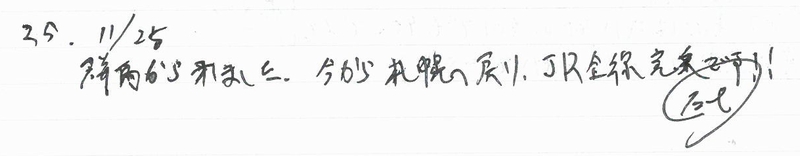 25. 11/25
群馬から来ました。今から札幌へ戻り、JR全線完乗です!!